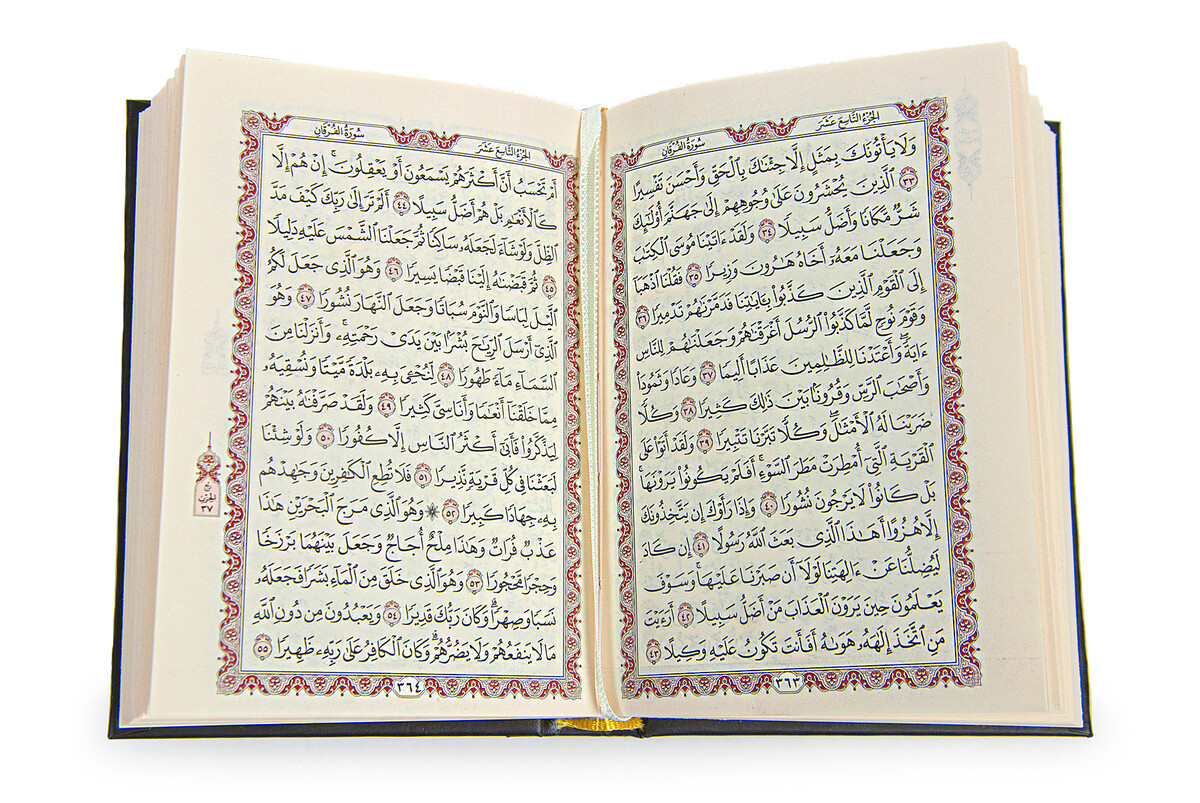 الجُزْءُ التَّاسِعَ عَشَرَ
سُورَةُ الفُرْقَانِ
وَلَا يَأْتُونَكَ بِمَثَلٍ إِلَّا جِئْنَٰكَ بِٱلْحَقِّ وَأَحْسَنَ تَفْسِيرًا
٣٣ ٱلَّذِينَ يُحْشَرُونَ عَلَىٰ وُجُوهِهِمْ إِلَىٰ جَهَنَّمَ أُو۟لَٰٓئِكَ
شَرٌّ مَّكَانًا وَأَضَلُّ سَبِيلًا ٣٤ وَلَقَدْ ءَاتَيْنَا مُوسَى ٱلْكِتَٰبَ
وَجَعَلْنَا مَعَهُۥٓ أَخَاهُ هَٰرُونَ وَزِيرًا ٣٥ فَقُلْنَا ٱذْهَبَآ
إِلَى ٱلْقَوْمِ ٱلَّذِينَ كَذَّبُوا۟ بِـَٔايَٰتِنَا فَدَمَّرْنَٰهُمْ تَدْمِيرًا ٣٦
وَقَوْمَ نُوحٍ لَّمَّا كَذَّبُوا۟ ٱلرُّسُلَ أَغْرَقْنَٰهُمْ وَجَعَلْنَٰهُمْ لِلنَّاسِ
ءَايَةً ۖ وَأَعْتَدْنَا لِلظَّٰلِمِينَ عَذَابًا أَلِيمًا ٣٧ وَعَادًا وَثَمُودَا۟
وَأَصْحَٰبَ ٱلرَّسِّ وَقُرُونًۢا بَيْنَ ذَٰلِكَ كَثِيرًا ٣٨ وَكُلًّا
ضَرَبْنَا لَهُ ٱلْأَمْثَٰلَ ۖ وَكُلًّا تَبَّرْنَا تَتْبِيرًا ٣٩ وَلَقَدْ أَتَوْا۟ عَلَى
ٱلْقَرْيَةِ ٱلَّتِىٓ أُمْطِرَتْ مَطَرَ ٱلسَّوْءِ ۚ أَفَلَمْ يَكُونُوا۟ يَرَوْنَهَا ۚ
بَلْ كَانُوا۟ لَا يَرْجُونَ نُشُورًا ٤٠ وَإِذَا رَأَوْكَ إِن يَتَّخِذُونَكَ
إِلَّا هُزُوًا أَهَٰذَا ٱلَّذِى بَعَثَ ٱللَّهُ رَسُولًا ٤١ إِن كَادَ
لَيُضِلُّنَا عَنْ ءَالِهَتِنَا لَوْلَآ أَن صَبَرْنَا عَلَيْهَا ۚ وَسَوْفَ
يَعْلَمُونَ حِينَ يَرَوْنَ ٱلْعَذَابَ مَنْ أَضَلُّ سَبِيلًا ٤٢ أَرَءَيْتَ
مَنِ ٱتَّخَذَ إِلَٰهَهُۥ هَوَىٰهُ أَفَأَنتَ تَكُونُ عَلَيْهِ وَكِيلًا ٤٣
٣٦٣
الجُزْءُ التَّاسِعَ عَشَرَ
سُورَةُ الفُرْقَانِ
أَمْ تَحْسَبُ أَنَّ أَكْثَرَهُمْ يَسْمَعُونَ أَوْ يَعْقِلُونَ ۚ إِنْ هُمْ إِلَّا
كَٱلْأَنْعَٰمِ ۖ بَلْ هُمْ أَضَلُّ سَبِيلًا ٤٤ أَلَمْ تَرَ إِلَىٰ رَبِّكَ كَيْفَ مَدَّ
ٱلظِّلَّ وَلَوْ شَآءَ لَجَعَلَهُۥ سَاكِنًا ثُمَّ جَعَلْنَا ٱلشَّمْسَ عَلَيْهِ دَلِيلًا
٤٥ ثُمَّ قَبَضْنَٰهُ إِلَيْنَا قَبْضًا يَسِيرًا ٤٦ وَهُوَ ٱلَّذِى جَعَلَ لَكُمُ
ٱلَّيْلَ لِبَاسًا وَٱلنَّوْمَ سُبَاتًا وَجَعَلَ ٱلنَّهَارَ نُشُورًا ٤٧ وَهُوَ
ٱلَّذِىٓ أَرْسَلَ ٱلرِّيَٰحَ بُشْرًۢا بَيْنَ يَدَىْ رَحْمَتِهِۦ ۚ وَأَنزَلْنَا مِنَ
ٱلسَّمَآءِ مَآءً طَهُورًا ٤٨ لِّنُحْـِۧىَ بِهِۦ بَلْدَةً مَّيْتًا وَنُسْقِيَهُۥ
مِمَّا خَلَقْنَآ أَنْعَٰمًا وَأَنَاسِىَّ كَثِيرًا ٤٩ وَلَقَدْ صَرَّفْنَٰهُ بَيْنَهُمْ
لِيَذَّكَّرُوا۟ فَأَبَىٰٓ أَكْثَرُ ٱلنَّاسِ إِلَّا كُفُورًا ٥٠ وَلَوْ شِئْنَا
لَبَعَثْنَا فِى كُلِّ قَرْيَةٍ نَّذِيرًا ٥١ فَلَا تُطِعِ ٱلْكَٰفِرِينَ وَجَٰهِدْهُم
بِهِۦ جِهَادًا كَبِيرًا ٥٢ ۞ وَهُوَ ٱلَّذِى مَرَجَ ٱلْبَحْرَيْنِ هَٰذَا
عَذْبٌ فُرَاتٌ وَهَٰذَا مِلْحٌ أُجَاجٌ وَجَعَلَ بَيْنَهُمَا بَرْزَخًا
وَحِجْرًا مَّحْجُورًا ٥٣ وَهُوَ ٱلَّذِى خَلَقَ مِنَ ٱلْمَآءِ بَشَرًا فَجَعَلَهُۥ
نَسَبًا وَصِهْرًا ۗ وَكَانَ رَبُّكَ قَدِيرًا ٥٤ وَيَعْبُدُونَ مِن دُونِ ٱللَّهِ
مَا لَا يَنفَعُهُمْ وَلَا يَضُرُّهُمْ ۗ وَكَانَ ٱلْكَافِرُ عَلَىٰ رَبِّهِۦ ظَهِيرًا ٥٥
الحِزْب
٣٧
٣٦٤